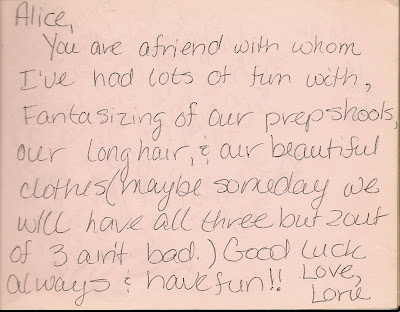 Alice,
You are a friend with whom
I've had lots of fun with,
Fantasizing of our prepshools,
our long hair, & our beautiful
clothes (maybe someday we
will have all three but 2 out
of 3 ain't bad.) Good Luck
always & have fun!! Love,
Lorie